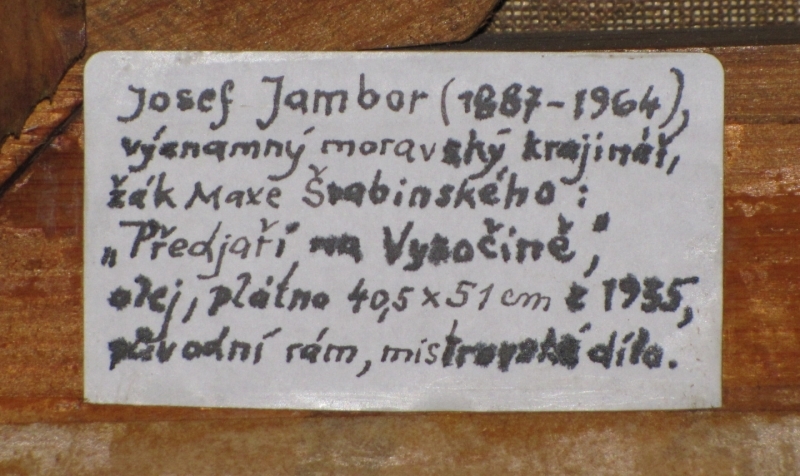 Josef Jambor (1887-1964),
významný moravský krajinář,
žák Maxe Švabinského:
„Předjaří na Vysočině",
olej, plátno 40,5 x 51 cm z 1935,
původní rám, mistrovské dílo.